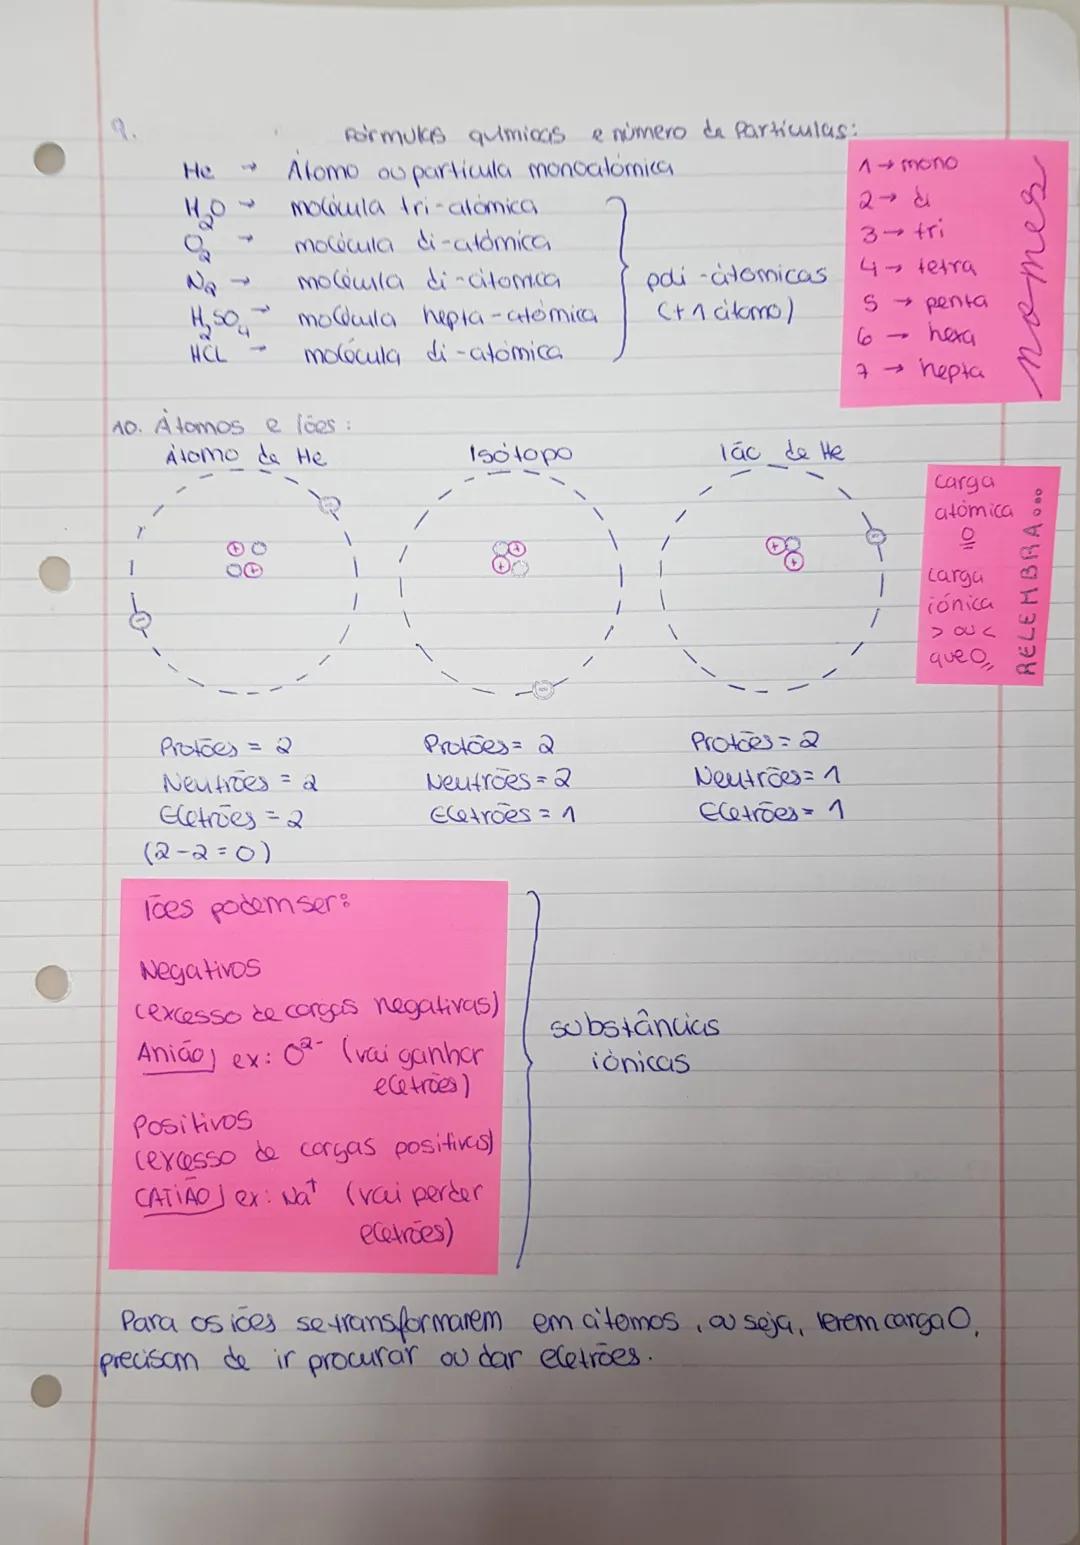 9.
Fórmulas químicas e número de Partículas:
He → Átomo ou partícula monoatómica
H2O → molécula tri-atómica
O2 → molécula di-atómica
N2 → molécula di-atómica
H2SO4 → molécula hepta-atómica
HCL → molécula di-atómica
poli-átomicas
(+1 átomo)
1 → mono
2 → di
3 → tri
4 → tetra
5 → penta
6 → hexa
7 → hepta
nomes
10. Átomos e Iões:
Átomo de He
Isótopo
Ião de He
carga
atómica
0
=
carga
iónica
> ou <
que 0
RELEMBRA...
Protões = 2
Neutrões = 2
Eletrões = 2
(2-2=0)
Protões = 2
Neutrões = 2
Eletrões = 1
Protões = 2
Neutrões = 1
Eletrões = 1
Iões podem ser:
Negativos
(excesso de cargas negativas)
Anião, ex: O2- (vai ganhar
eletrões)
Positivos
(excesso de cargas positivas)
CATIÃO, ex: Na+ (vai perder
eletrões)
substâncias
iónicas
Para os iões se transformarem em átomos, ou seja, terem carga 0,
precisam de ir procurar ou dar eletrões.